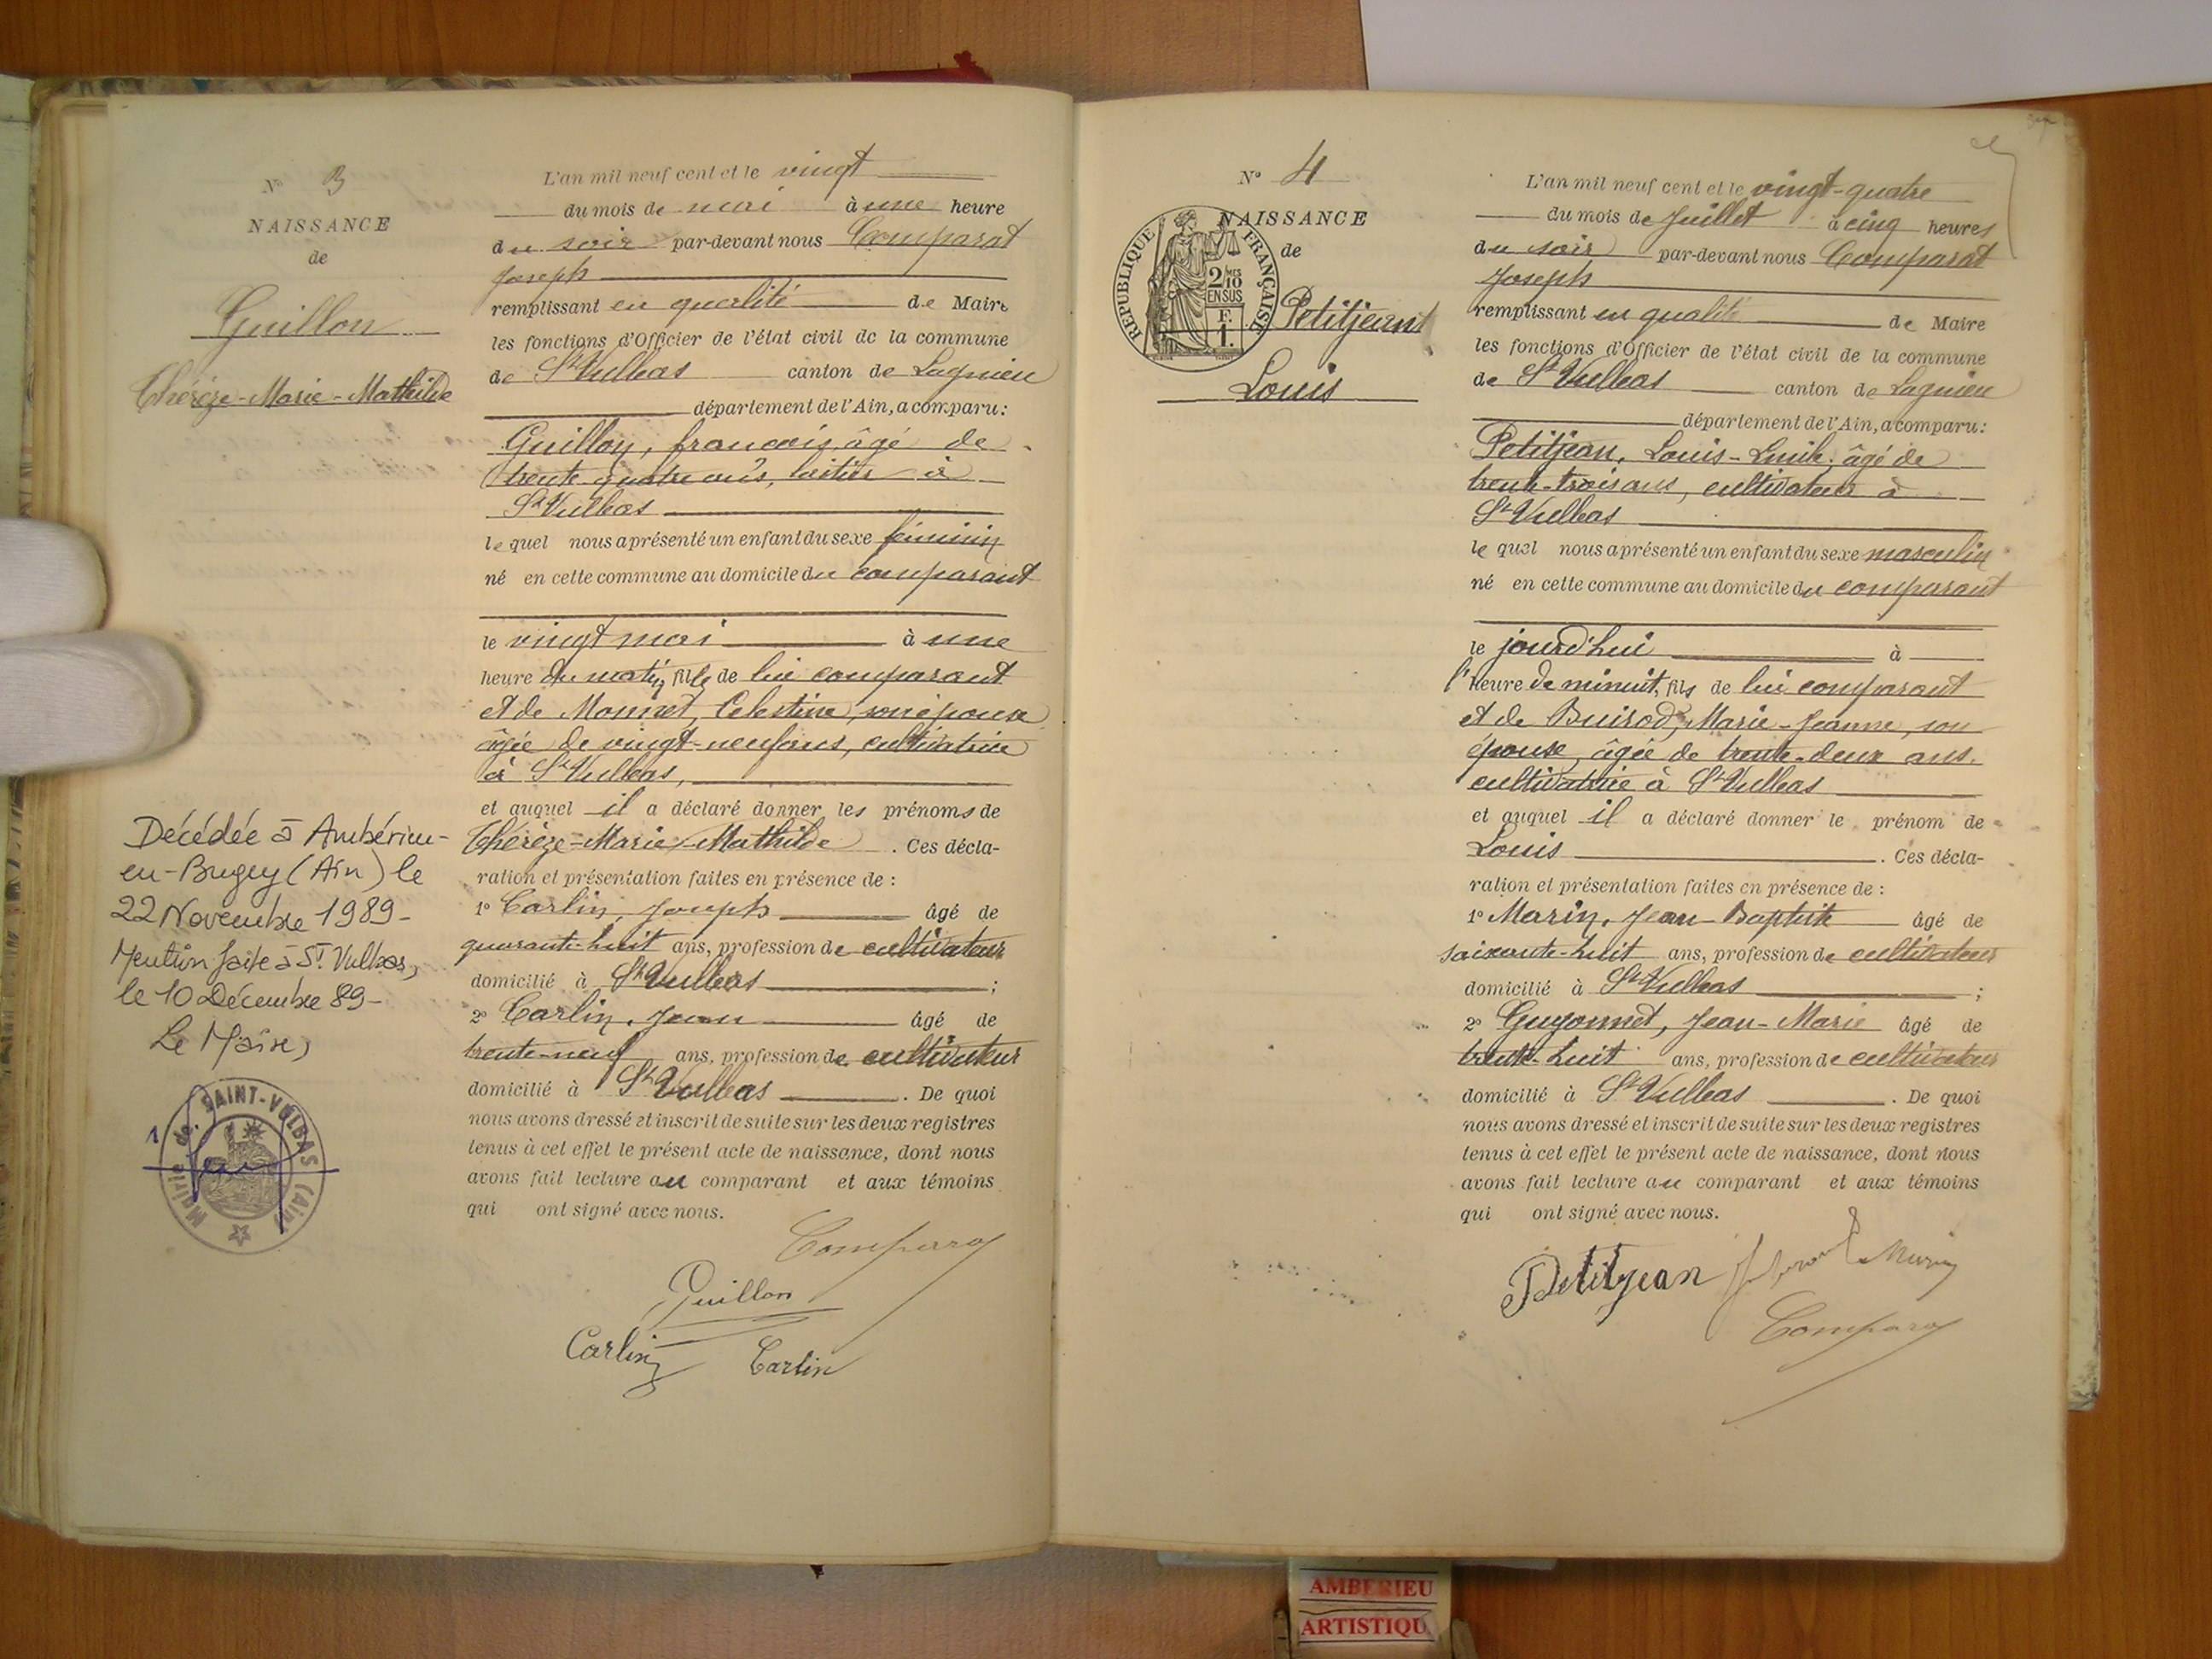 N° 3
NAISSANCE
de
Guillon
Thérèze-Marie-Mathilde
L'an mil neuf cent et le vingt
du mois de mai à une heure
du soir par-devant nous Comparat
Joseph
remplissant en qualité de Maire
les fonctions d'Officier de l'état civil de la commune
de St Vulbas canton de Lagnieu
département de l'Ain, a comparu:
Guillon, francois, âgé de
trente quatre ans, laitier à
St Vulbas
le quel nous a présenté un enfant du sexe féminin
né en cette commune au domicile du comparant
le vingt mai à une
heure du matin, fille de lui comparant
et de Monnet, Celestine, son épouse
âgée de vingt-neuf ans, cultivatrice
à St Vulbas,
et auquel il a déclaré donner les prénoms de
Thérèze-Marie-Mathilde. Ces décla-
ration et présentation faites en présence de :
1° Carlin, Joseph âgé de
quarante-huit ans, profession de cultivateur
domicilié à St Vulbas ;
2° Carlin, Jean âgé de
trente-neuf ans, profession de cultivateur
domicilié à St Vulbas. De quoi
nous avons dressé et inscrit de suite sur les deux registres
tenus à cet effet le présent acte de naissance, dont nous
avons fait lecture au comparant et aux témoins
qui ont signé avec nous.
Comparat
Guillon
Carlin Carlin
Décédée à Ambérieu-
en-Bugey (Ain) le
22 Novembre 1989-
Mention faite à St Vulbas,
le 10 Décembre 89-
Le Maire,
Mairie de SAINT-VULBAS (AIN)
N° 4
NAISSANCE
de
REPUBLIQUE FRANÇAISE
2/10 MES
EN SUS
F.
1.
Petitjean
Louis
L'an mil neuf cent et le vingt-quatre
du mois de Juillet à cinq heures
du soir par-devant nous Comparat
Joseph
remplissant en qualité de Maire
les fonctions d'Officier de l'état civil de la commune
de St Vulbas canton de Lagnieu
département de l'Ain, a comparu:
Petitjean, Louis-Emile, âgé de
trente-trois ans, cultivateur à
St Vulbas
le quel nous a présenté un enfant du sexe masculin
né en cette commune au domicile du comparant
le jourd'hui à
l'heure de minuit, fils de lui comparant
et de Buirod, Marie-Jeanne, son
épouse, âgée de trente-deux ans.
cultivatrice à St Vulbas
et auquel il a déclaré donner le prénom de
Louis. Ces décla-
ration et présentation faites en présence de :
1° Marin, Jean-Baptiste âgé de
soixante-huit ans, profession de cultivateur
domicilié à St Vulbas ;
2° Guyonnet, Jean-Marie âgé de
trente-huit ans, profession de cultivateur
domicilié à St Vulbas. De quoi
nous avons dressé et inscrit de suite sur les deux registres
tenus à cet effet le présent acte de naissance, dont nous
avons fait lecture au comparant et aux témoins
qui ont signé avec nous.
Petitjean Marin
Comparat
AMBERIEU
ARTISTIQU